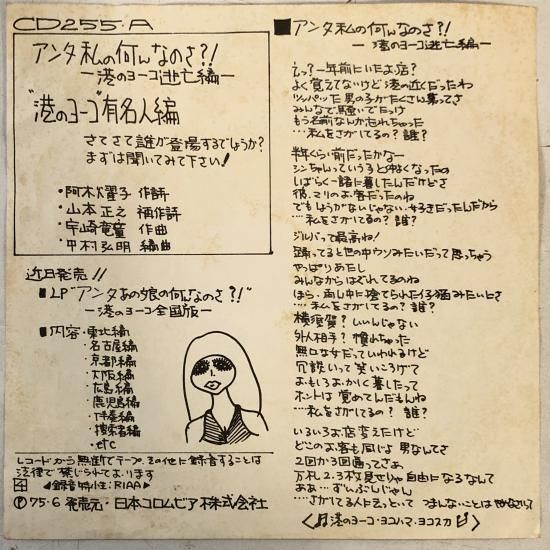 CD255・A
アンタ私の何んなのさ?!
ー港のヨーコ逃亡編ー
"港のヨーコ"有名人編
さてさて誰が登場するでしょうか?
まずは聞いてみて下さい!
・阿木燿子 作詩
・山本正之 補作詩
・宇崎竜童 作曲
・中村弘明 編曲
近日発売!!
■LP"アンタあの娘の何んなのさ?!"
ー港のヨーコ全国版ー
■内容・東北編
・名古屋編
・京都編
・大阪編
・広島編
・鹿児島編
・伴奏編
・捜索者編
・etc
レコードから無断でテープ、その他に録音することは
法律で禁じられております
◀録音特性:RIAA▶
Ⓟ75・6 発売元・日本コロムビア株式会社
■アンタ私の何んなのさ?!
ー港のヨーコ逃亡編ー
えっ?一年前にいたよ店?
よく覚えてないけど港の近くだったわ
ツッパッた男の子がたくさん集ってさ
みんなで騒いでたっけ
もう名前なんか忘れちゃった
‥‥私をさがしてるの? 誰?
半年くらい前だったかなー
シンちゃんっていうろと仲よくなったの
しばらく一緒に暮したんだけどさ
彼、マリのよ客だったのね
でもしょうがないじゃない、好きだったんだから
‥‥私をさがしてるの? 誰?
ジルバって最高ね!
踊ってると世の中ウソみたいだって思っちゃう
やっぱりあたし
みんなからはぐれてるのね
ほら、雨ん中に捨てられた仔猫みたいにさ
‥‥私をさがしてるの? 誰?
横須賀? しぃんじゃない
外人相手? 慣れちゃった
無口な女だっていわれるけど
冗談いって笑いころげて
よもしろよかしく暮したって
ホントは 覚めてんだもんね
‥‥私をさがしてるの? 誰?
いろいろよ店変えたけど
どこのよ客も同じよ 男なんてさ
2回か3回通ってさぁ
万札2、3枚見せりゃ自由になるなんて
ああ…ずいぶんじゃん
‥‥さがしてる人に云っといて つまんないことは
<港のヨーコ・ヨコハマ・ヨコスカ>